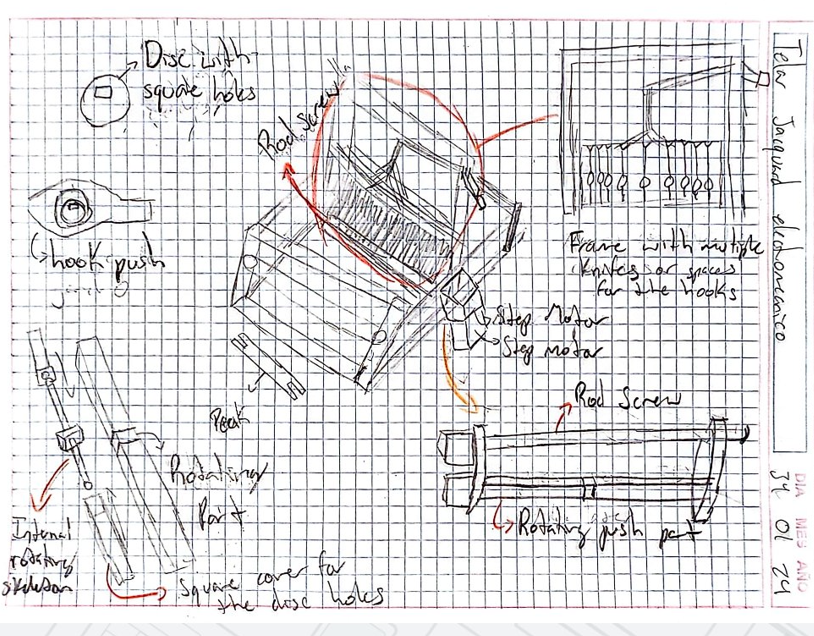 Telar Jacquard electromecanico
DIA MES AÑO
01 24
Disc with
square holes
Rod screw
hook push
Frame with multiple
knifes or spaces
for the hooks
Step Motor
Step motor
Rod Screw
Rotating
Part
Rotating push part
Internal
rotating
skeleton
Square cover for
the disc holes